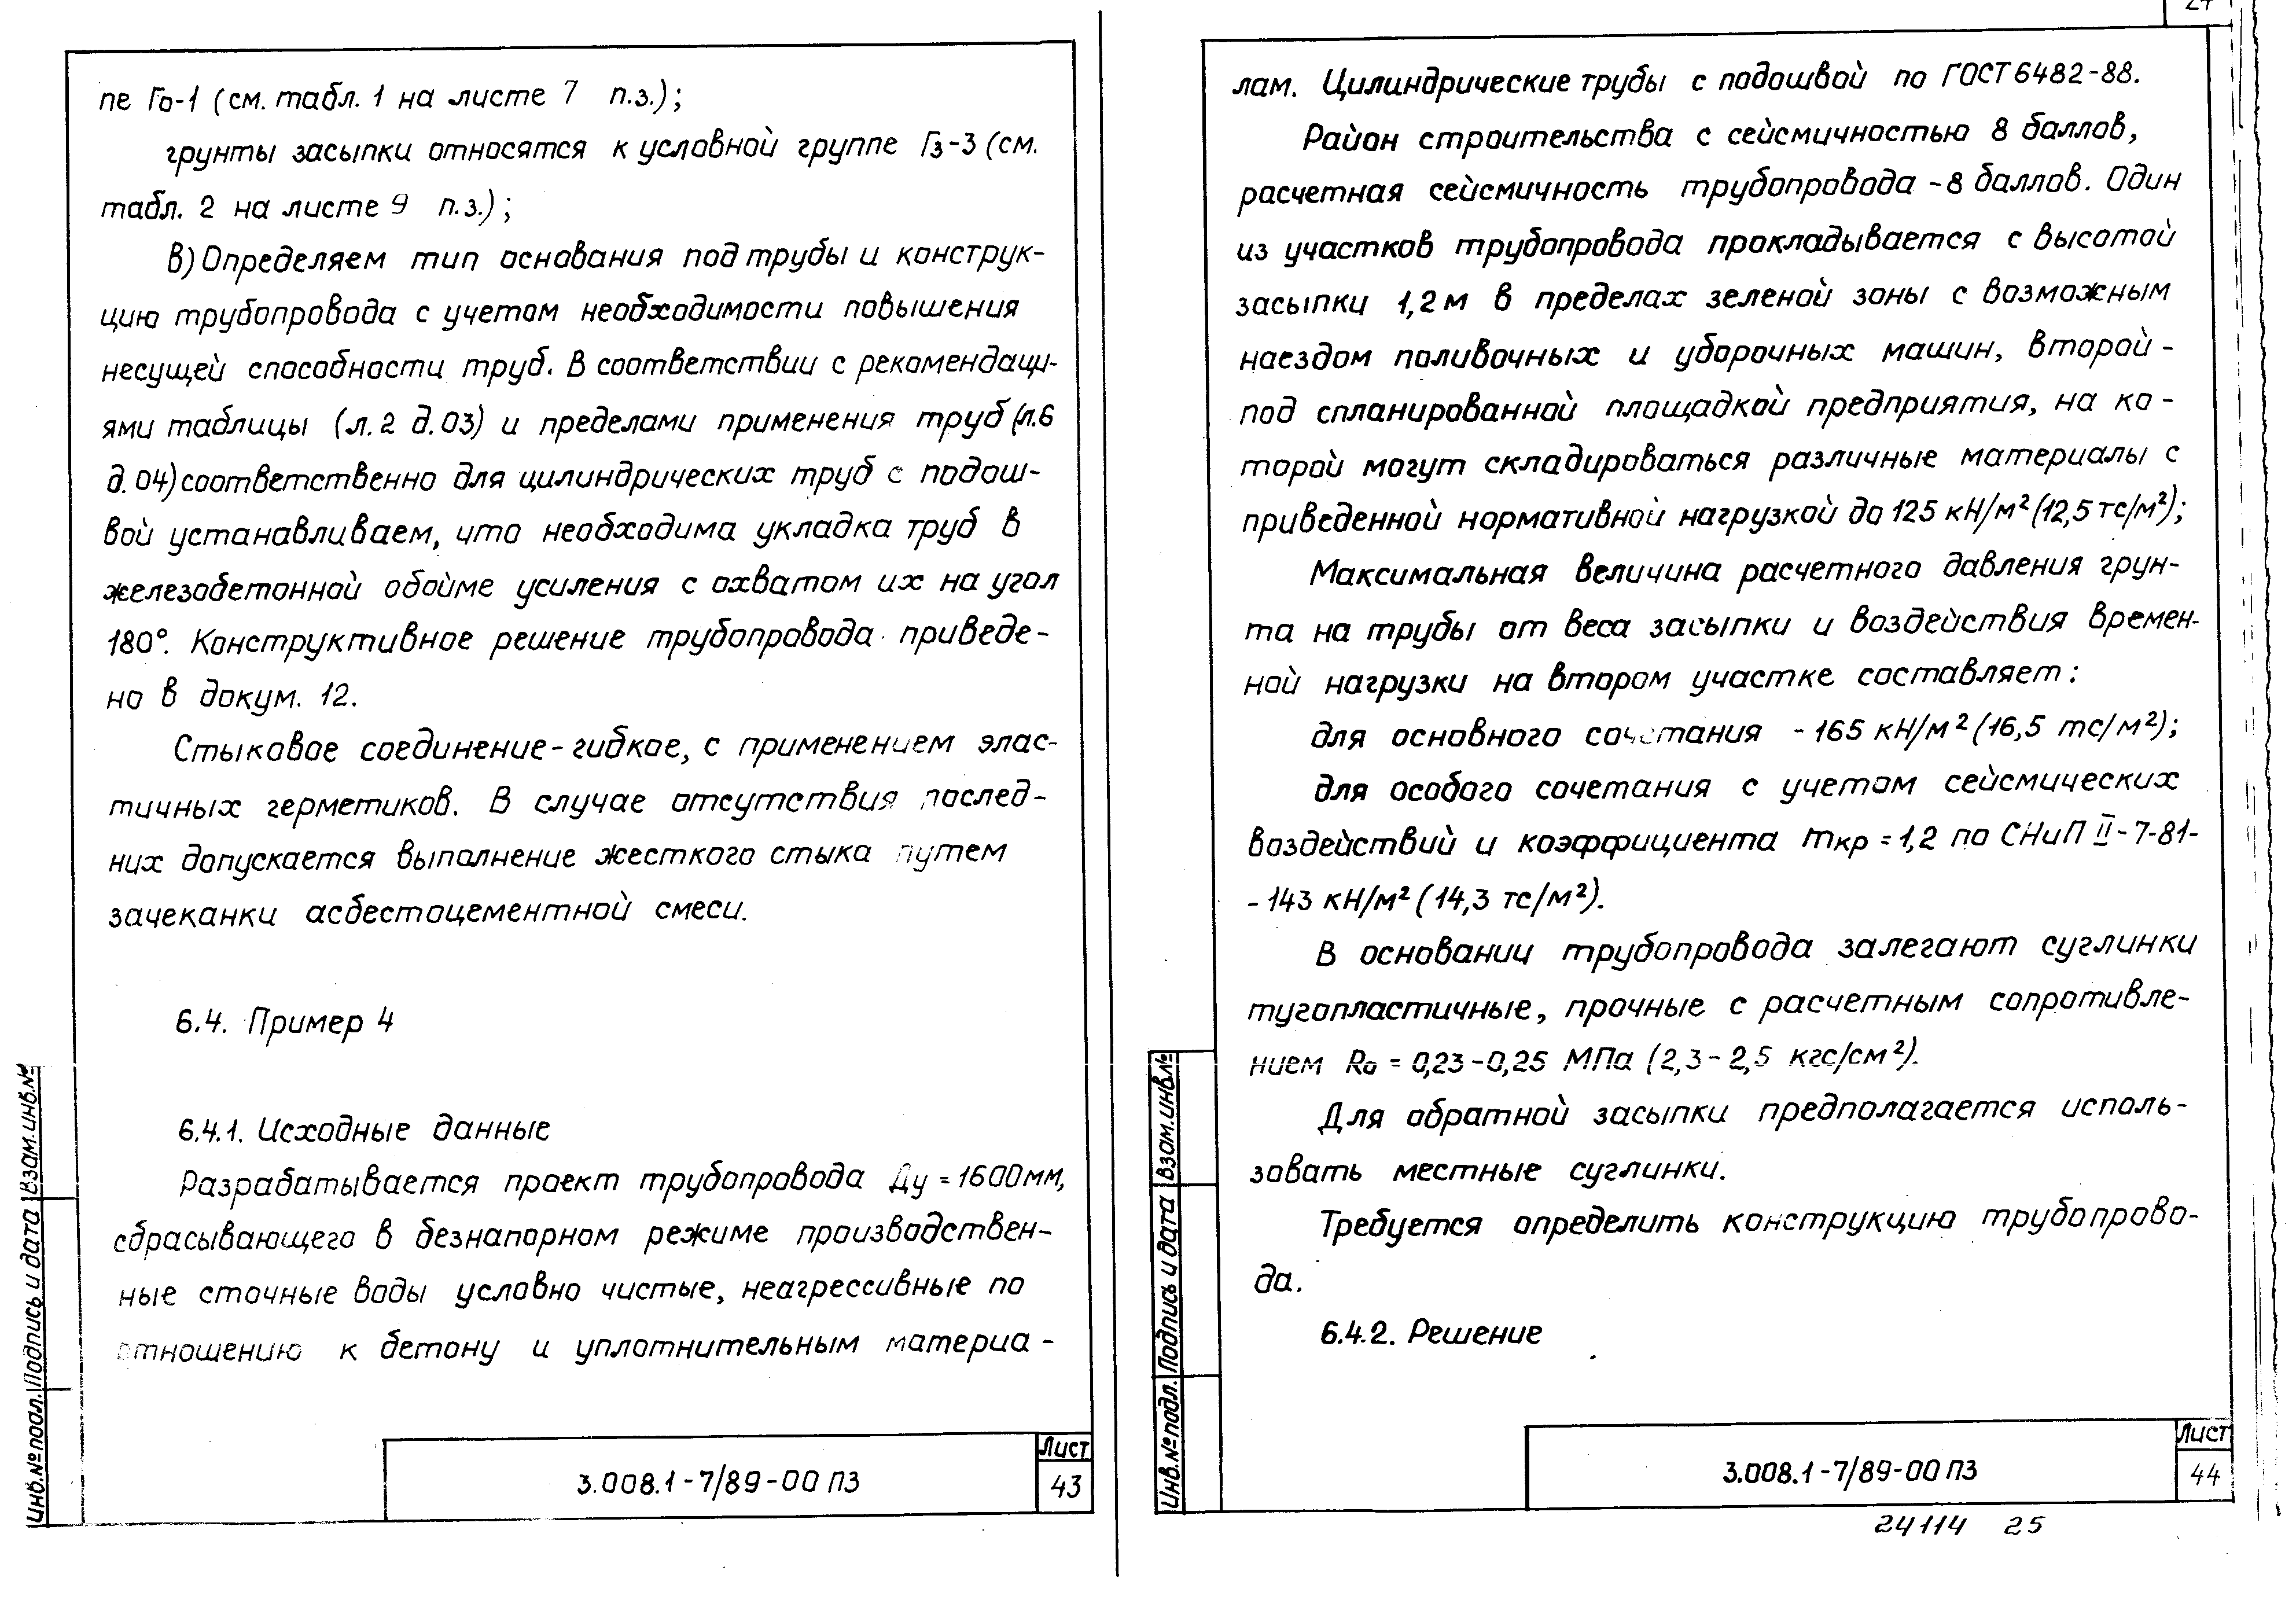 пе Го-1 (см. табл. 1 на листе 7 п.з.);
грунты засыпки относятся к условной группе Гз-3 (см.
табл. 2 на листе 9 п.з.);
в) Определяем тип основания под трубы и конструк-
цию трубопровода с учетом необходимости повышения
несущей способности труб. В соответствии с рекомендаци-
ями таблицы (л.2 д.03) и пределами применения труб (л.6
д.04) соответственно для цилиндрических труб с подош-
вой устанавливаем, что необходима укладка труб в
железобетонной обойме усиления с охватом их на угол
180°. Конструктивное решение трубопровода приведе-
но в докум. 12.
Стыковое соединение - гибкое, с применением элас-
тичных герметиков. В случае отсутствия послед-
них допускается выполнение жесткого стыка путем
зачеканки асбестоцементной смеси.
6.4. Пример 4
6.4.1. Исходные данные
Разрабатывается проект трубопровода Ду = 1600мм,
сбрасывающего в безнапорном режиме производствен-
ные сточные воды условно чистые, неагрессивные по
отношению к бетону и уплотнительным материа-
Инв.№подл. Подпись и дата Взам.инв.№
3.008.1-7/89-00 ПЗ
Лист
43
лам. Цилиндрические трубы с подошвой по ГОСТ 6482-88.
Район строительства с сейсмичностью 8 баллов,
расчетная сейсмичность трубопровода - 8 баллов. Один
из участков трубопровода прокладывается с высотой
засыпки 1,2м в пределах зеленой зоны с возможным
наездом поливочных и уборочных машин, второй -
под спланированной площадкой предприятия, на ко-
торой могут складироваться различные материалы с
приведенной нормативной нагрузкой до 125 кН/м² (12,5 тс/м²);
Максимальная величина расчетного давления грун-
та на трубы от веса засыпки и воздействия времен-
ной нагрузки на втором участке составляет:
для основного сочетания - 165 кН/м² (16,5 тс/м²);
для особого сочетания с учетом сейсмических
воздействий и коэффициента mкр = 1,2 по СНиП II-7-81-
- 143 кН/м² (14,3 тс/м²).
В основании трубопровода залегают суглинки
тугопластичные, прочные с расчетным сопротивле-
нием Rо = 0,23-0,25 МПа (2,3-2,5 кгс/см²).
Для обратной засыпки предполагается исполь-
зовать местные суглинки.
Требуется определить конструкцию трубопрово-
да.
6.4.2. Решение
Инв.№подл. Подпись и дата Взам.инв.№
3.008.1-7/89-00 ПЗ
Лист
44
24114 25